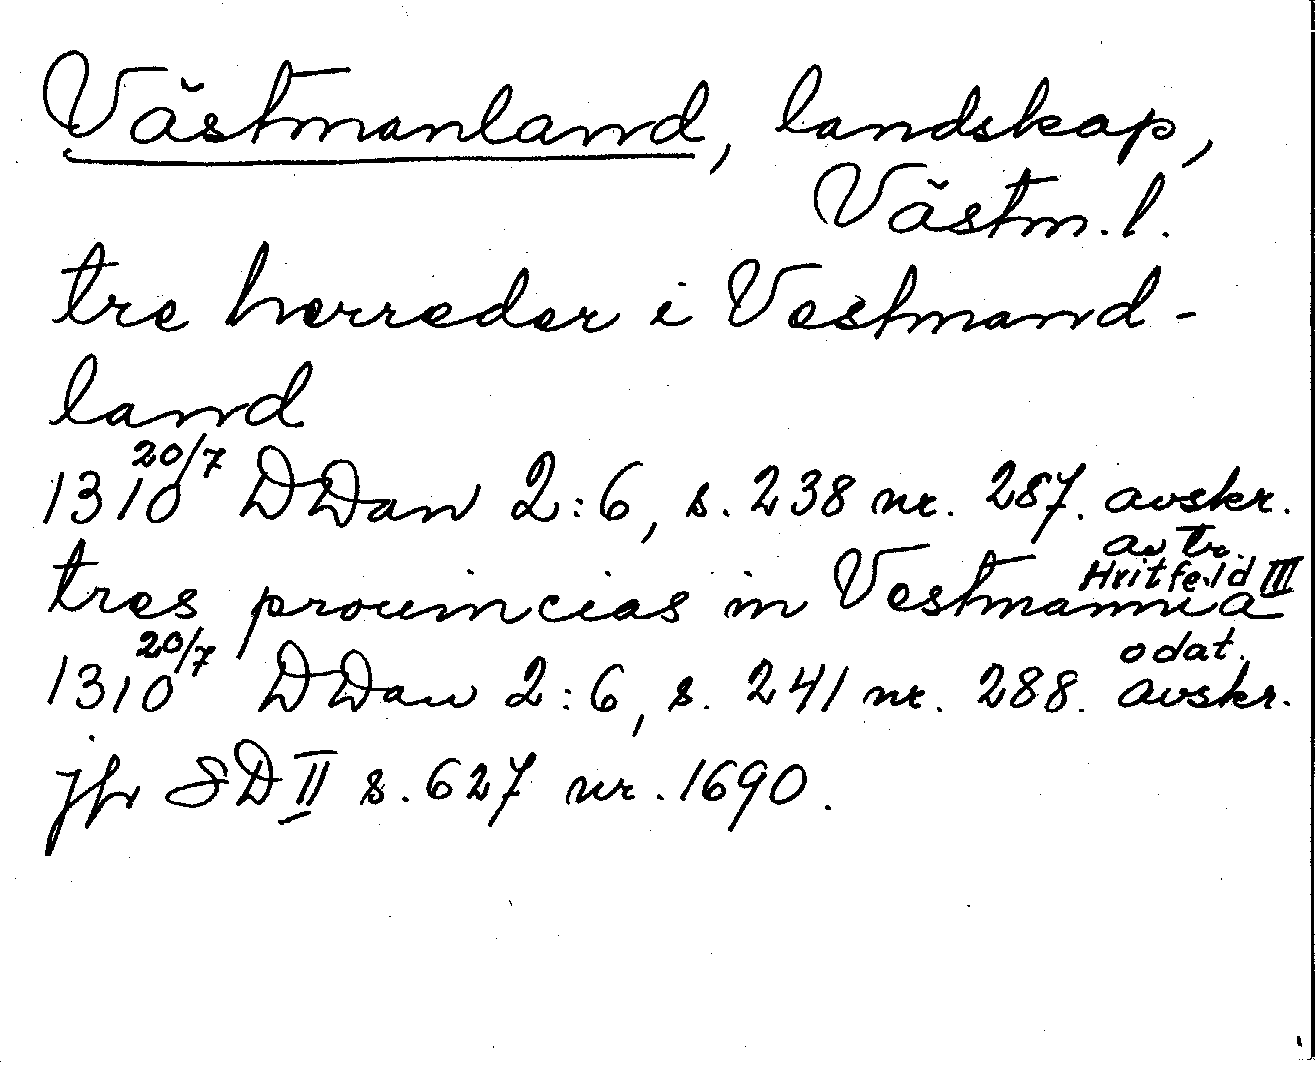 Västmanland, landskap,
Västm.l.
tre herreder i Vestmand-
land
1310 20/7 DDan 2:6, s. 238 nr. 287. avskr.
av tr.
Hvitfeld III
tres prouincias in Vestmannia
1310 20/7 DDan 2:6, s. 241 nr. 288. odat. avskr.
jfr SD II s. 627 nr. 1690.